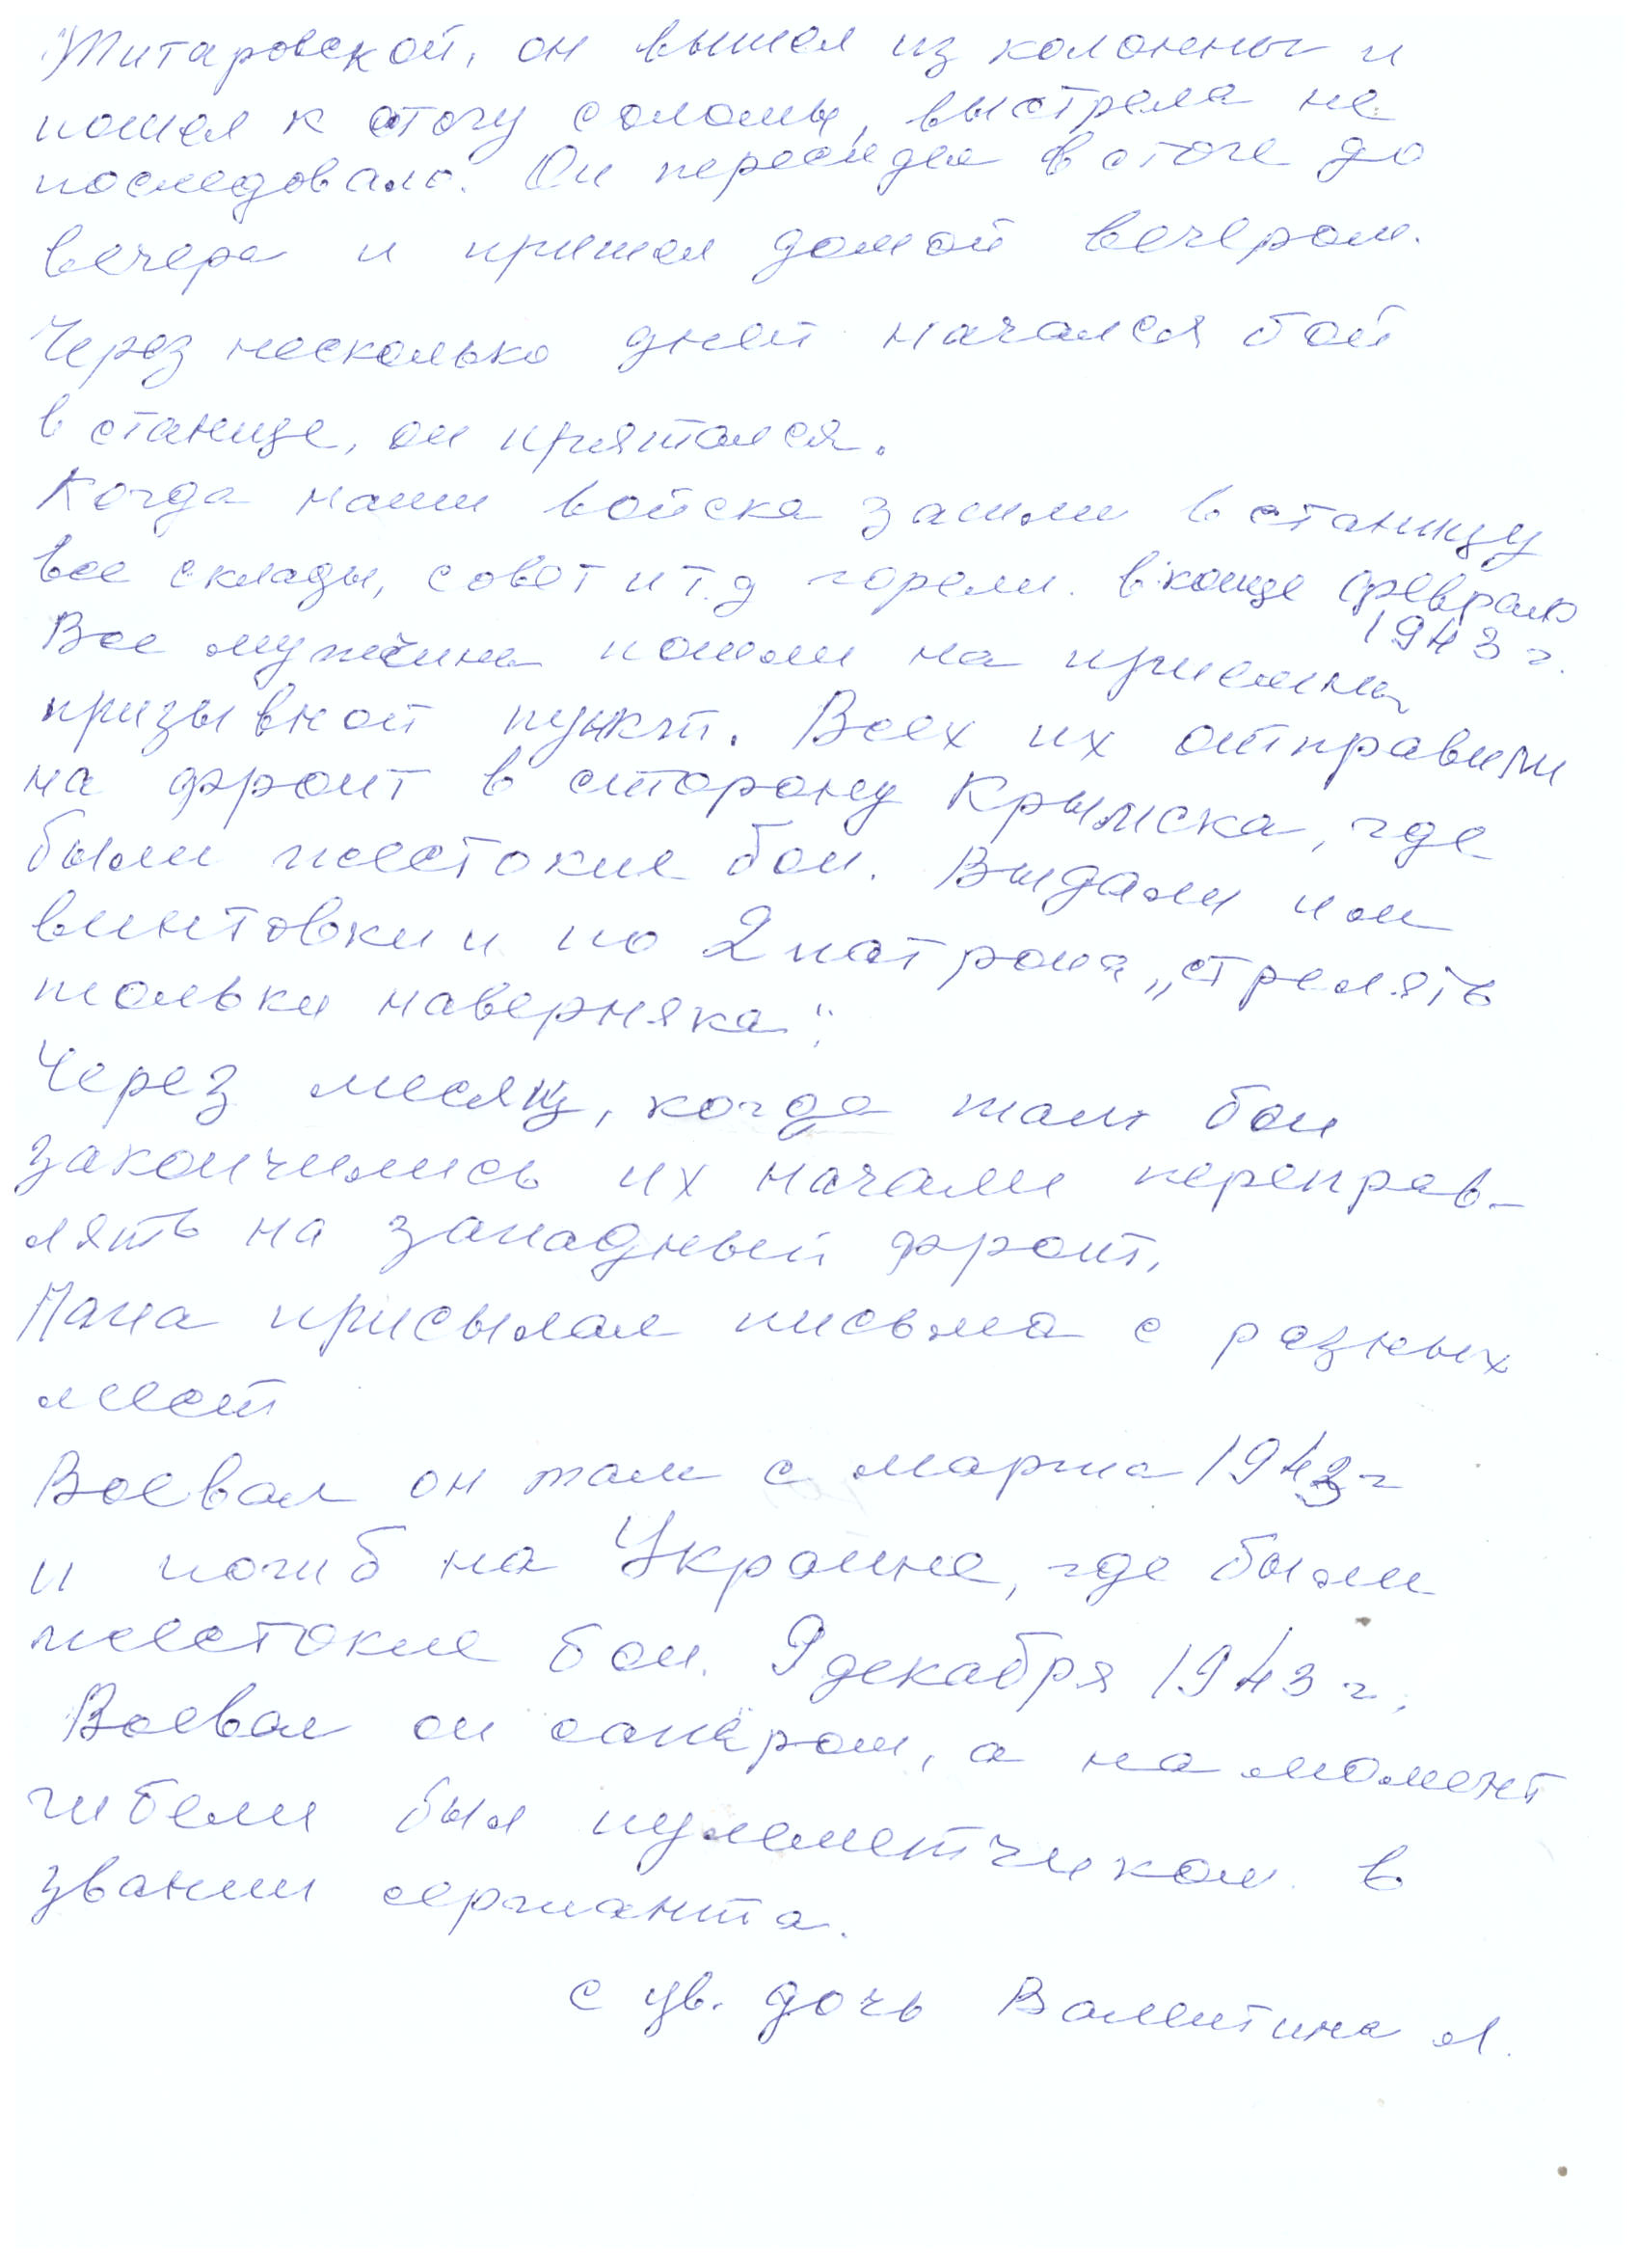 Титаровской, он вышел из колонны и
пошел к стогу соломы, выстрела не
последовало. Он пересидел в стоге до
вечера и пришел домой вечером.
Через несколько дней начался бой
в станице, он прятался.
Когда наши войска зашли в станицу
все склады, совет и т.д горели. в конце февраля
1943 г.
Все мужчины пошли на
призывной пункт. Всех их отправили
на фронт в сторону Крымска, где
были жестокие бои. Выдали им
винтовки и по 2 патрона „стрелять
только наверняка".
Через месяц, когда там бои
закончились их начали переправ-
лять на западный фронт.
Папа присылал письма с разных
мест
Воевал он там с марта 1943 г
и погиб на Украине, где были
жестокие бои. 9 декабря 1943 г.
Воевал он сапёром, а на момент
гибели был пулеметчиком в
звании сержанта.
с ув. дочь Валентина Л.